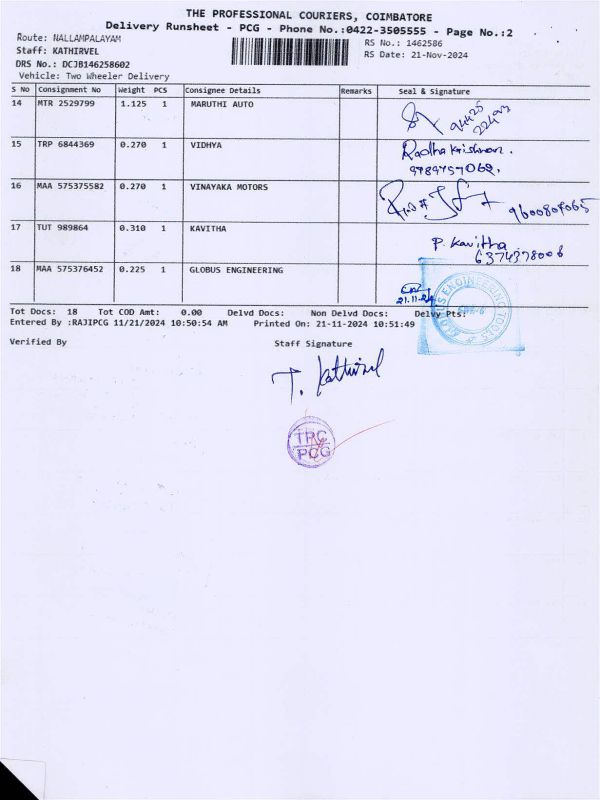 THE PROFESSIONAL COURIERS, COIMBATORE
Delivery Runsheet - PCG - Phone No.:0422-3505555 - Page No.:2
Route: NALLAMPALAYAM
Staff: KATHIRVEL
DRS No.: DCJB146258602
Vehicle: Two Wheeler Delivery
RS No.: 1462586
RS Date: 21-Nov-2024
S No Consignment No Weight PCS Consignee Details Remarks Seal & Signature
14 MTR 2529799 1.125 1 MARUTHI AUTO
15 TRP 6844369 0.270 1 VIDHYA Radha Krishnan.
9789757062.
16 MAA 575375582 0.270 1 VINAYAKA MOTORS 9600804065
17 TUT 989864 0.310 1 KAVITHA P. Kavitha
6374378006
18 MAA 575376452 0.225 1 GLOBUS ENGINEERING
21.11.24
GLOBUS ENGINEERING TOOLS
Tot Docs: 18 Tot COD Amt: 0.00 Delvd Docs: Non Delvd Docs: Delvy Pts:
Entered By :RAJIPCG 11/21/2024 10:50:54 AM Printed On: 21-11-2024 10:51:49
Verified By Staff Signature
T. Kathirvel
TPC
PCG